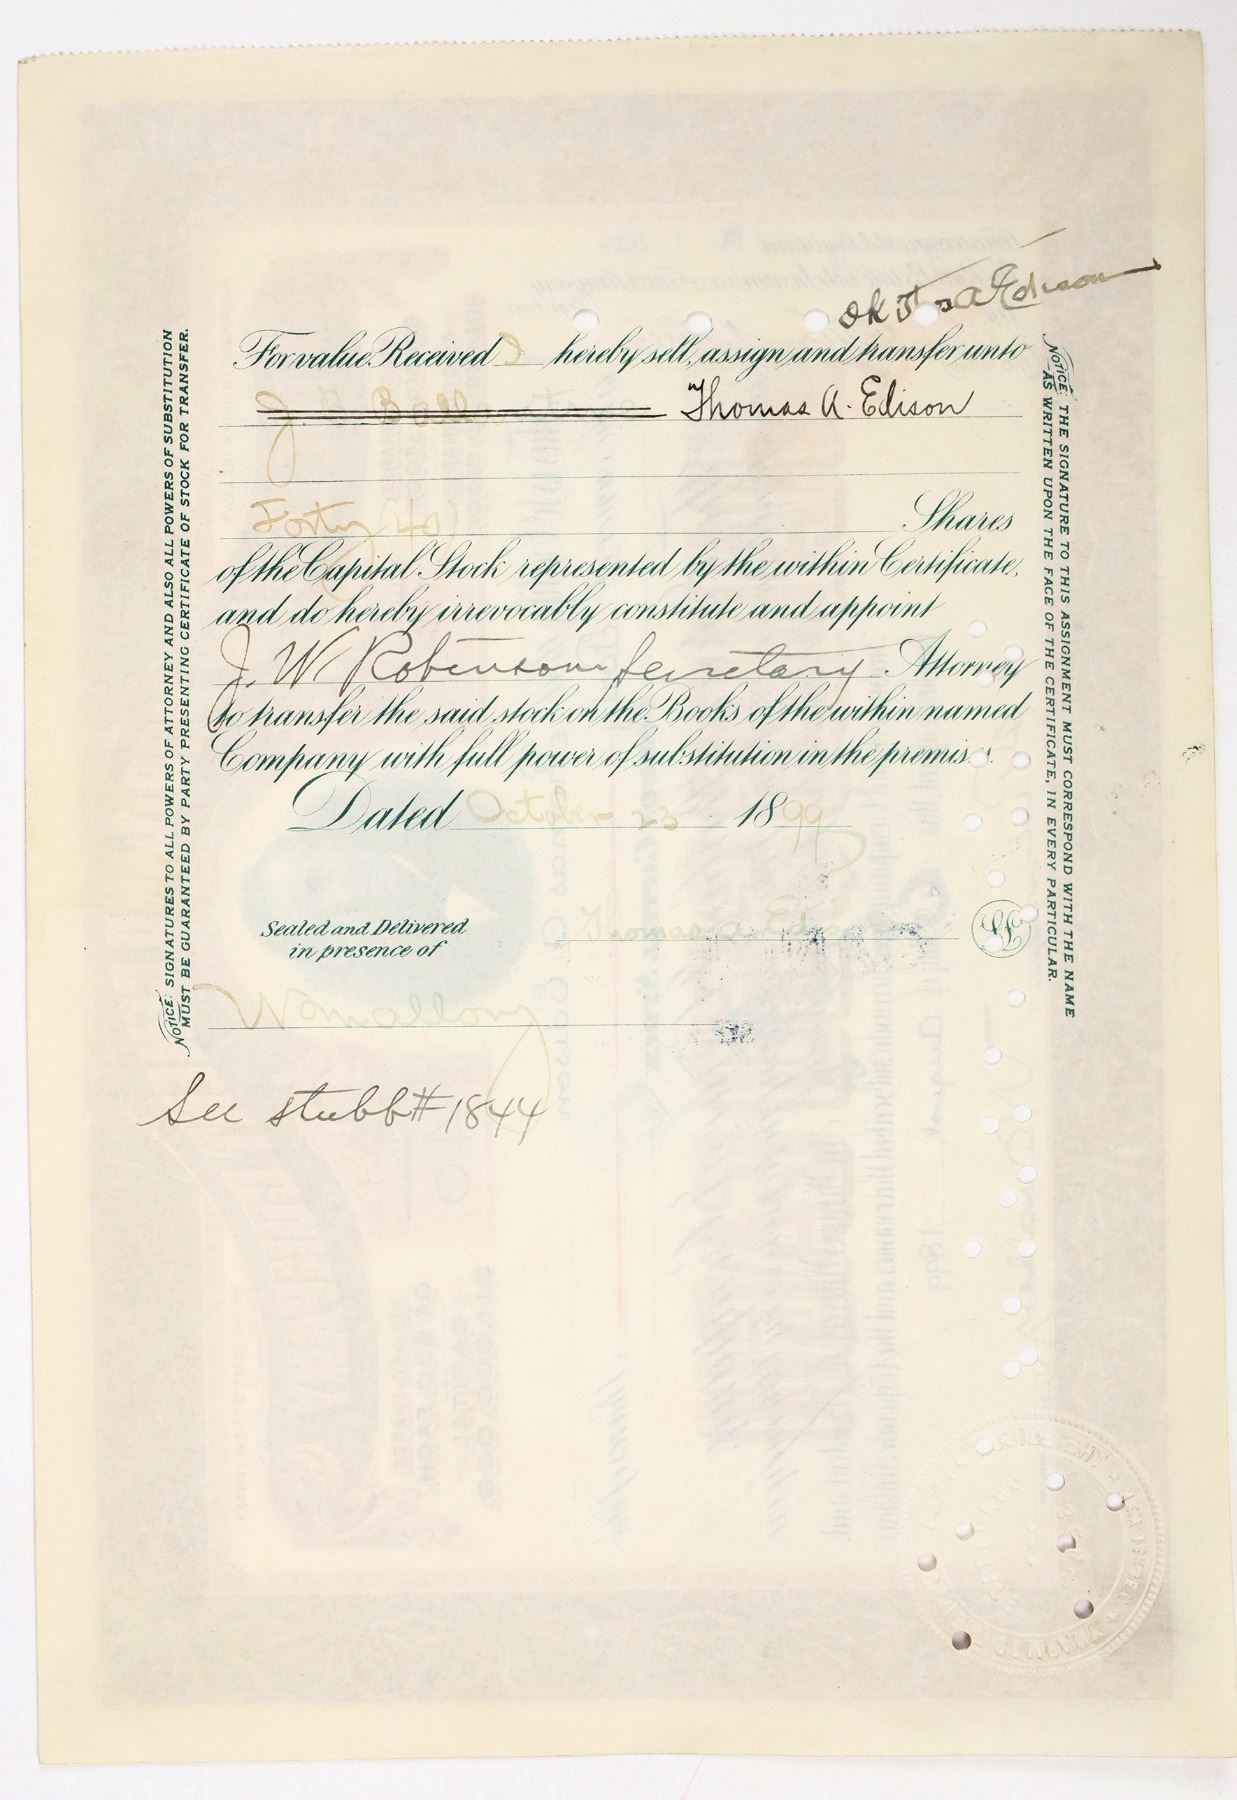 OK Thos A Edison
For value Received I hereby sell, assign and transfer unto
J. B Ball Thomas A. Edison
Forty (40) Shares
of the Capital Stock represented by the within Certificate,
and do hereby irrevocably constitute and appoint
J. W Robinson Secretary Attorney
to transfer the said stock on the Books of the within named
Company with full power of substitution in the premises.
Dated October 23 1899
Thomas A Edison
Sealed and Delivered
in presence of
W S Mallory
See stubb # 1844
NOTICE: SIGNATURES TO ALL POWERS OF ATTORNEY AND ALSO ALL POWERS OF SUBSTITUTION
MUST BE GUARANTEED BY PARTY PRESENTING CERTIFICATE OF STOCK FOR TRANSFER.
NOTICE: THE SIGNATURE TO THIS ASSIGNMENT MUST CORRESPOND WITH THE NAME
AS WRITTEN UPON THE FACE OF THE CERTIFICATE, IN EVERY PARTICULAR.